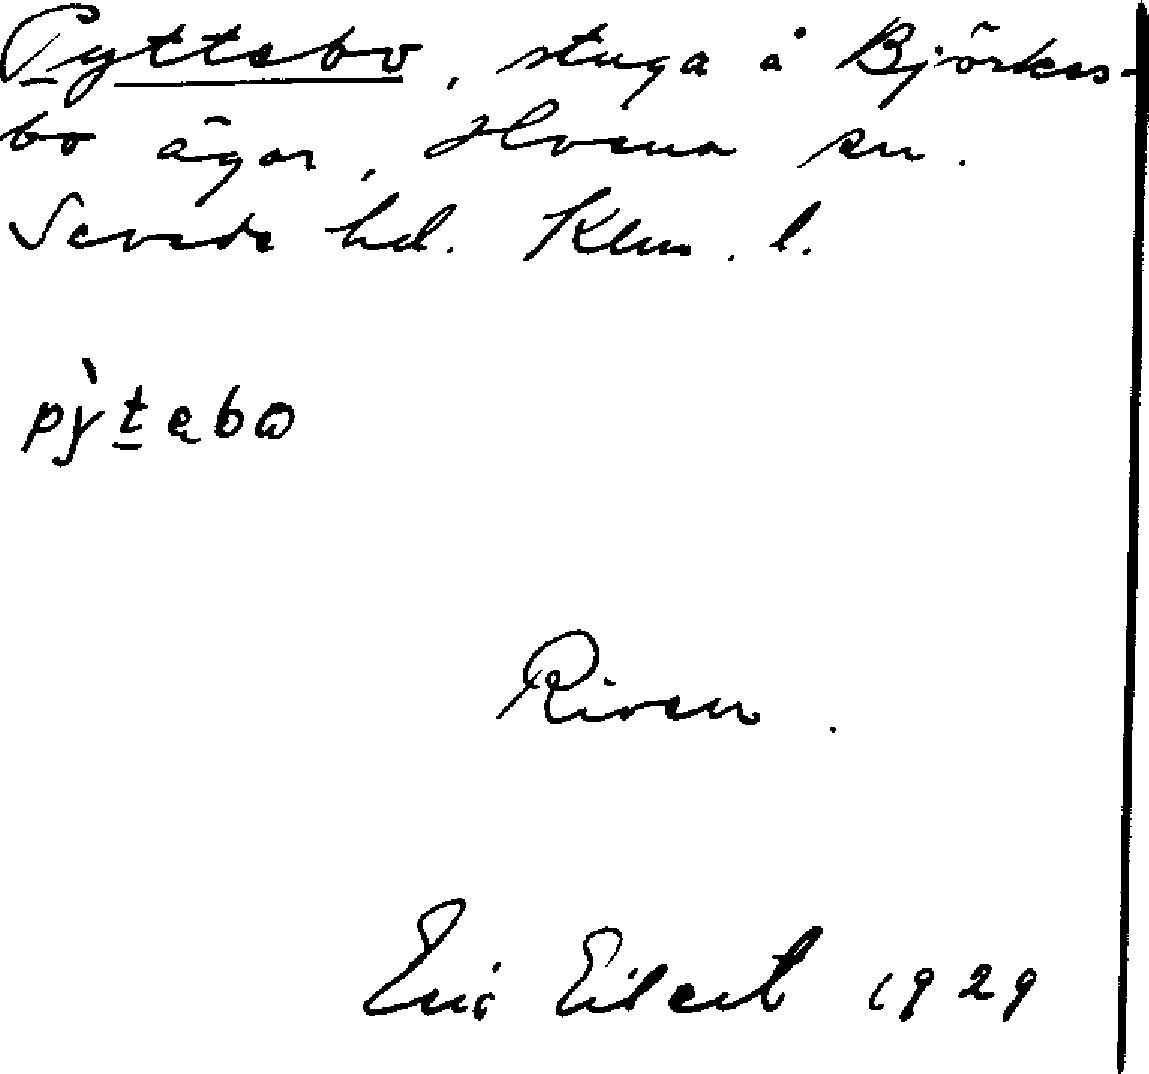 Pyttebo, stuga å Björkes-
bo ägor, Hvena sn.
Sevede hd. Klm. l.
pỳtəbo
Riven.
Eric Eilert 1929